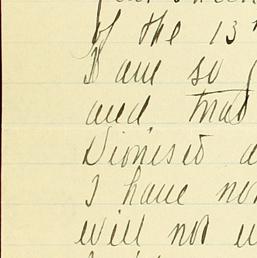 of the 13
I am so
and that
Dionisio
I have no
will not